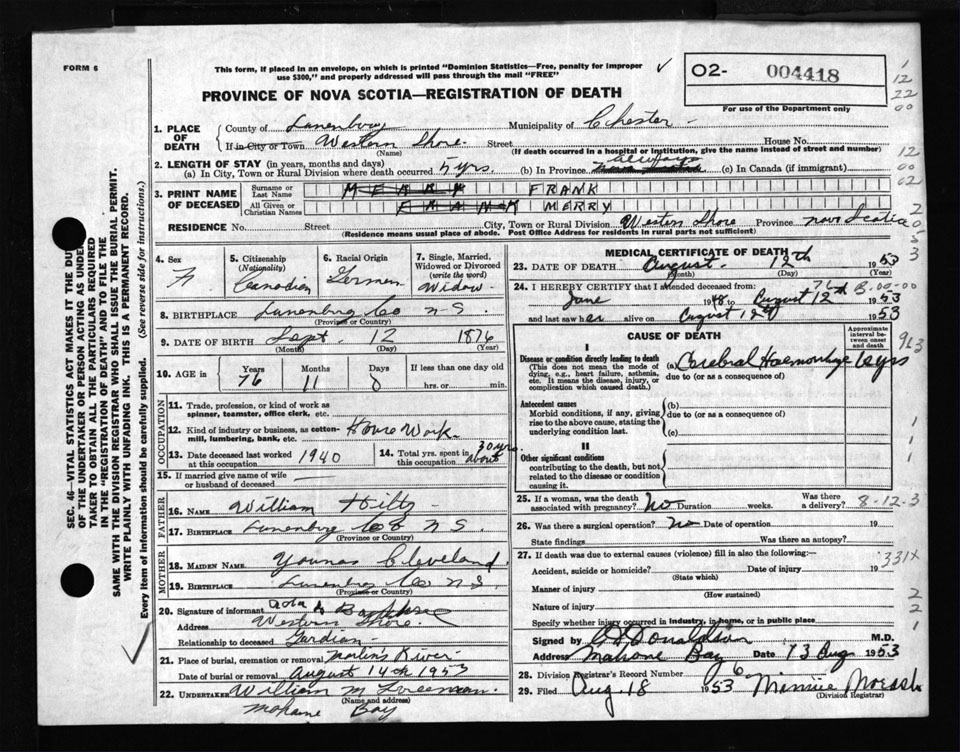 FORM 6
This form, if placed in an envelope, on which is printed "Dominion Statistics—Free, penalty for improper
use $300," and properly addressed will pass through the mail "FREE"
02- 004418
For use of the Department only
PROVINCE OF NOVA SCOTIA—REGISTRATION OF DEATH
1
12
22
00
12
00
02
2
0
5
3
3
SEC. 46—VITAL STATISTICS ACT MAKES IT THE DUTY
OF THE UNDERTAKER OR PERSON ACTING AS UNDER-
TAKER TO OBTAIN ALL THE PARTICULARS REQUIRED
IN THE "REGISTRATION OF DEATH" AND TO FILE THE
SAME WITH THE DIVISION REGISTRAR WHO SHALL ISSUE THE BURIAL PERMIT.
WRITE PLAINLY WITH UNFADING INK. THIS IS A PERMANENT RECORD.
Every item of information should be carefully supplied. (See reverse side for instructions.)
1. PLACE OF DEATH
County of Lunenburg Municipality of Chester
If in City or Town Western Shore Street House No.
(Name) (If death occurred in a hospital or institution, give the name instead of street and number)
2. LENGTH OF STAY (in years, months and days)
(a) In City, Town or Rural Division where death occurred 5 yrs. (b) In Province always (c) In Canada (if immigrant)
3. PRINT NAME OF DECEASED
Surname or Last Name MERRY FRANK
All Given or Christian Names FRANK MERRY
RESIDENCE No. Street City, Town or Rural Division Western Shore Province Nova Scotia
(Residence means usual place of abode. Post Office Address for residents in rural parts not sufficient)
4. Sex F
5. Citizenship (Nationality) Canadian
6. Racial Origin German
7. Single, Married, Widowed or Divorced (write the word) Widow
8. BIRTHPLACE Lunenburg Co N S
(Province or Country)
9. DATE OF BIRTH Sept. 12 1876
(Month) (Day) (Year)
10. AGE in Years 76 Months 11 Days 0 If less than one day old
hrs. or min.
OCCUPATION
11. Trade, profession, or kind of work as
spinner, teamster, office clerk, etc.
12. Kind of industry or business, as cotten-
mill, lumbering, bank, etc. House Work
13. Date deceased last worked at this occupation 1940
14. Total yrs. spent in this occupation about 30 yrs.
15. If married give name of wife
or husband of deceased
FATHER
16. NAME William Hiltz
17. BIRTHPLACE Lunenburg Co N S.
(Province or Country)
MOTHER
18. MAIDEN NAME Cleveland
19. BIRTHPLACE Lunenburg Co N S
(Province or Country)
20. Signature of informant
Address Western Shore.
Relationship to deceased Gardian
21. Place of burial, cremation or removal Martins River
Date of burial or removal August 14th 1953
22. UNDERTAKER William M Freeman.
(Name and address)
Mahone Bay
MEDICAL CERTIFICATE OF DEATH
23. DATE OF DEATH August. 12th 1953
(Month) (Day) (Year)
24. I HEREBY CERTIFY that I attended deceased from
June 1948 to August 12 1953
and last saw her alive on August 12 1953
76 B.00-00
CAUSE OF DEATH
Approximate interval between onset and death
913
I
Disease or condition directly leading to death
(This does not mean the mode of
dying, e.g., heart failure, asthenia,
etc. It means the disease, injury, or
complication which caused death.)
(a) Cerebral Haemorrhage
due to (or as a consequence of)
Antecedent causes
Morbid conditions, if any, giving
rise to the above cause, stating the
underlying condition last.
(b)
due to (or as a consequence of)
(c)
1
II
Other significant conditions
contributing to the death, but not
related to the disease or condition
causing it.
1
25. If a woman, was the death
associated with pregnancy? No Duration weeks. Was there a delivery?
8-12-3
26. Was there a surgical operation? No Date of operation 19
State findings Was there an autopsy?
27. If death was due to external causes (violence) fill in also the following:—
331X
Accident, suicide or homicide? Date of injury 19
(State which)
Manner of injury
(How sustained)
2
Nature of injury
2
Specify whether injury occurred in industry, in home, or in public place
1
Signed by Donaldson M.D.
Address Mahone Bay Date 13 Aug 1953
28. Division Registrar's Record Number 6
29. Filed Aug. 18 1953 Minnie Morash
(Division Registrar)